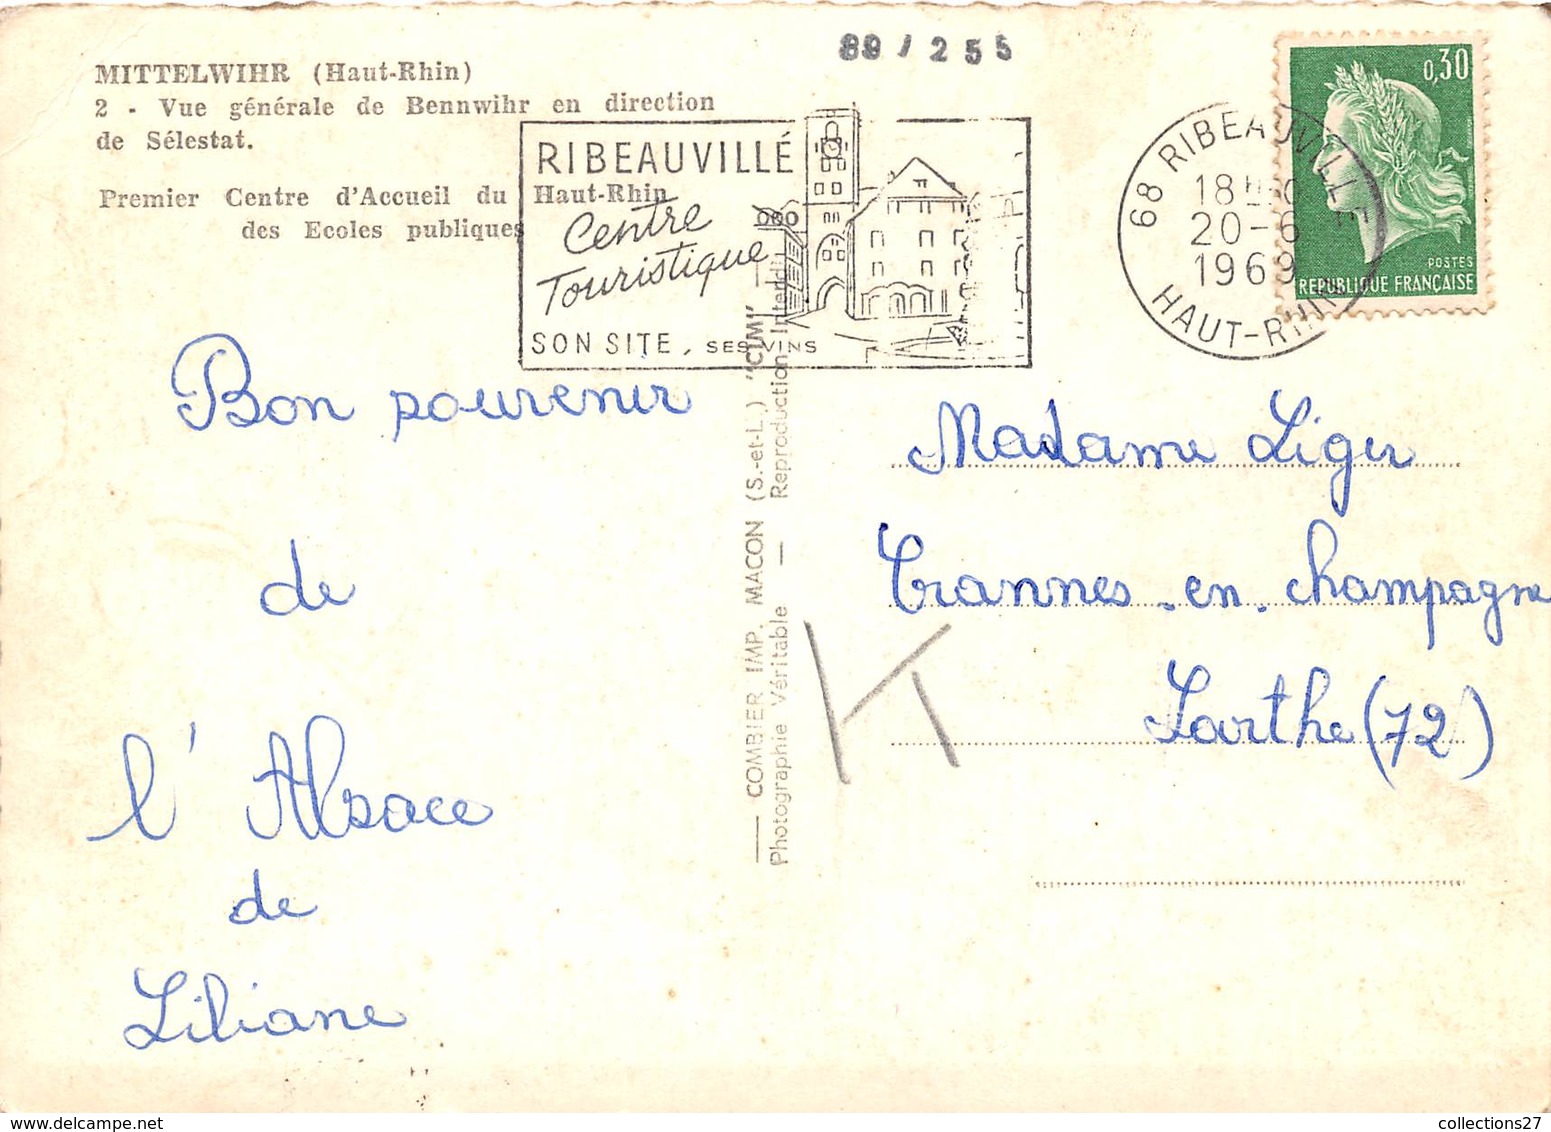 89/255
MITTELWIHR (Haut-Rhin)
2 - Vue générale de Bennwihr en direction
de Sélestat.
Premier Centre d'Accueil du Haut-Rhin
des Ecoles publiques
RIBEAUVILLÉ
Centre
Touristique
SON SITE, SES VINS
68 RIBEAUVILLE
18H
20-6
1969
HAUT-RHIN
0,30
POSTES
REPUBLIQUE FRANÇAISE
Bon souvenir
de
l'Alsace
de
Liliane
COMBIER IMP. MACON (S.-et-L.) "CIM"
Photographie Véritable — Reproduction Interdite
Madame Liger
Crannes-en-champagne
Sarthe (72)
collections27